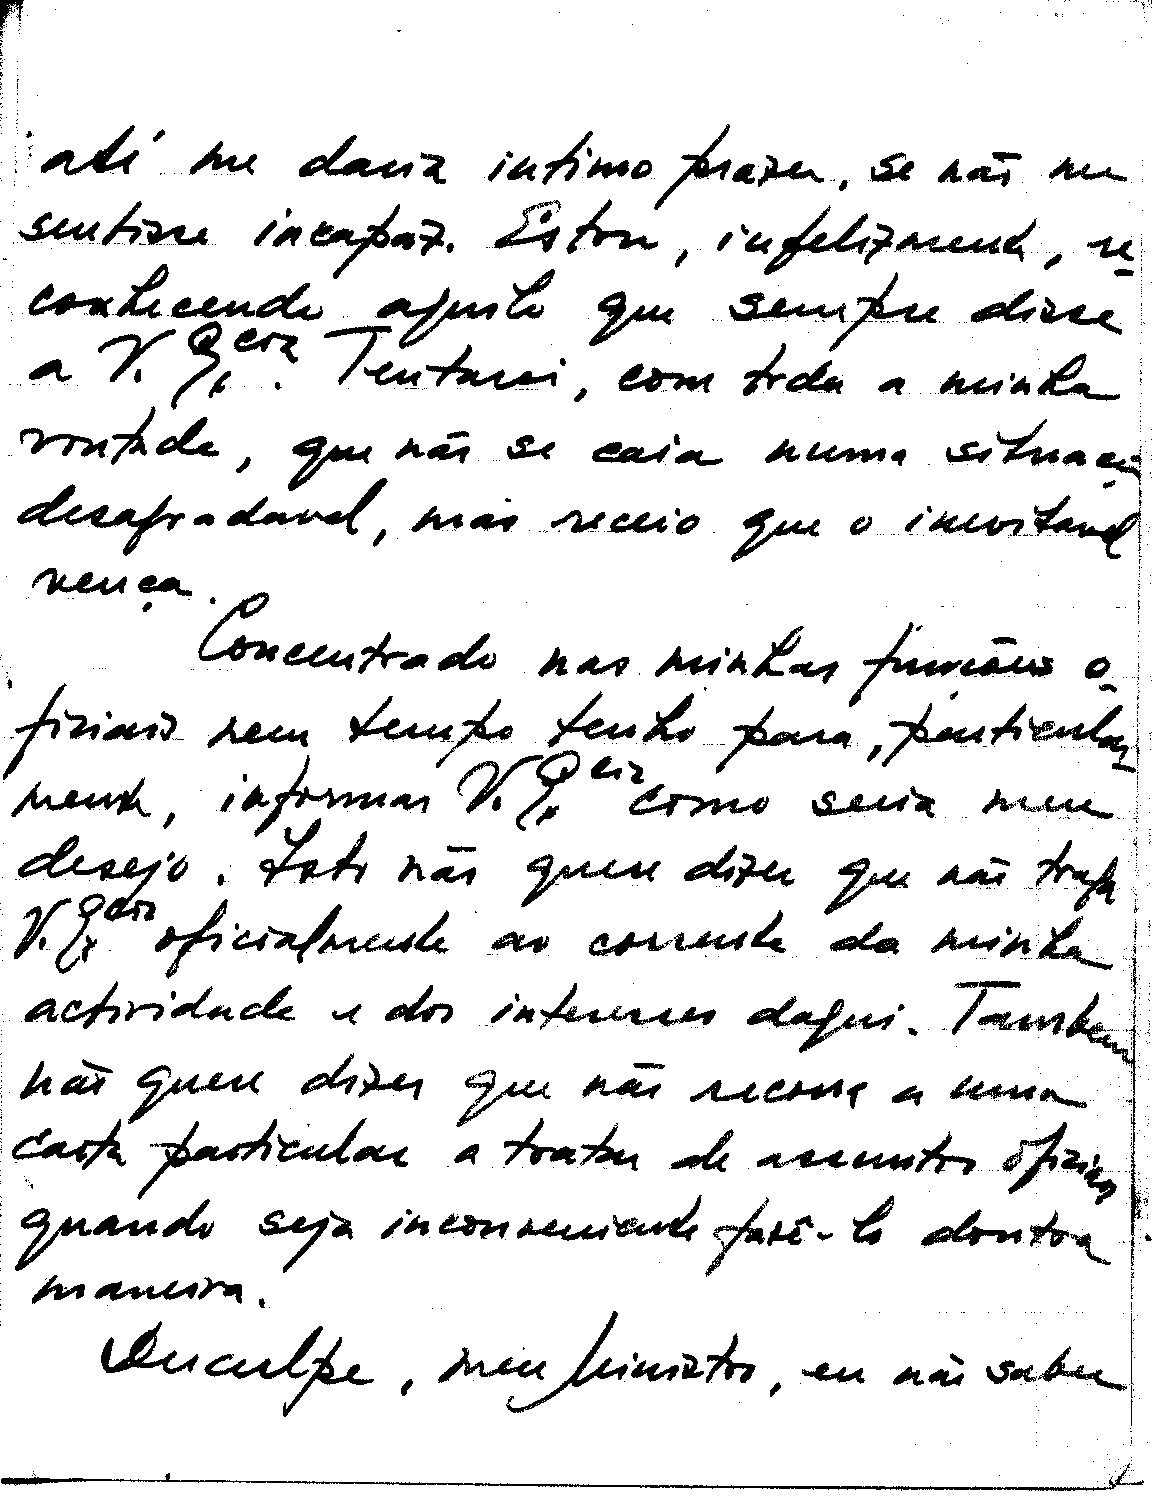 até me daria intimo prazer, se não me
sentisse incapaz. Estou, infelizmente, re-
conhecendo aquilo que sempre disse
a V. Ex.cia. Tentarei, com toda a minha
vontade, que não se caia numa situação
desagradavel, mas receio que o inevitavel
vença.
Concentrado nas minhas funções o-
ficiais nem tempo tenho para, particular-
mente, informar V. Ex.cia como seria meu
desejo. Isto não quere dizer que não traga
V. Ex.cia oficialmente ao corrente da minha
actividade e dos interesses daqui. Tambem
não quere dizer que não recorra a uma
carta particular a tratar de assuntos oficiais
quando seja inconveniente fazê-lo doutra
maneira.
Desculpe, meu Ministro, eu não saber